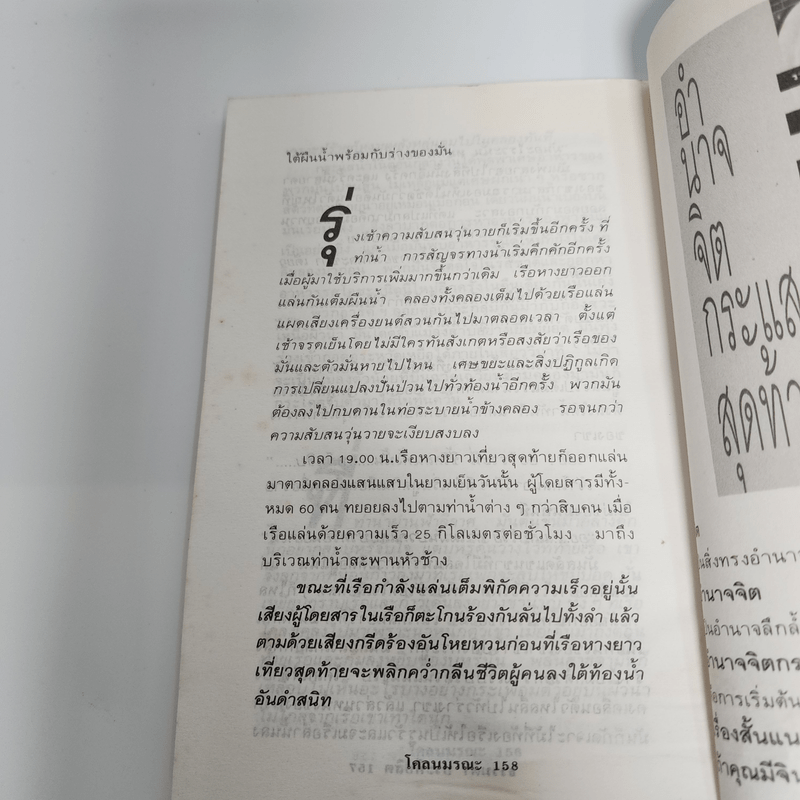 ใต้ผืนน้ำพร้อมกับร่างของมั่น
รุ่งเช้าความสับสนวุ่นวายก็เริ่มขึ้นอีกครั้ง ที่
ท่าน้ำ การสัญจรทางน้ำเริ่มคึกคักอีกครั้ง
เมื่อผู้มาใช้บริการเพิ่มมากขึ้นกว่าเดิม เรือหางยาวออก
แล่นกันเต็มผืนน้ำ คลองทั้งคลองเต็มไปด้วยเรือแล่น
แผดเสียงเครื่องยนต์สวนกันไปมาตลอดเวลา ตั้งแต่
เช้าจรดเย็นโดยไม่มีใครทันสังเกตหรือสงสัยว่าเรือของ
มั่นและตัวมั่นหายไปไหน เศษขยะและสิ่งปฏิกูลเกิด
การเปลี่ยนแปลงปั่นป่วนไปทั่วท้องน้ำอีกครั้ง พวกมัน
ต้องลงไปกบดานในท่อระบายน้ำข้างคลอง รอจนกว่า
ความสับสนวุ่นวายจะเงียบสงบลง
เวลา 19.00 น.เรือหางยาวเที่ยวสุดท้ายก็ออกแล่น
มาตามคลองแสนแสบในยามเย็นวันนั้น ผู้โดยสารมีทั้ง-
หมด 60 คน ทยอยลงไปตามท่าน้ำต่าง ๆ กว่าสิบคน เมื่อ
เรือแล่นด้วยความเร็ว 25 กิโลเมตรต่อชั่วโมง มาถึง
บริเวณท่าน้ำสะพานหัวช้าง
ขณะที่เรือกำลังแล่นเต็มพิกัดความเร็วอยู่นั้น
เสียงผู้โดยสารในเรือก็ตะโกนร้องกันลั่นไปทั้งลำ แล้ว
ตามด้วยเสียงกรีดร้องอันโหยหวนก่อนที่เรือหางยาว
เที่ยวสุดท้ายจะพลิกคว่ำกลืนชีวิตผู้คนลงใต้ท้องน้ำ
อันดำสนิท
โคลนมรณะ 158
อำ
นาจ
จิต
กระแส
สุดท้า
ในสิ่งทรงอำนา
อำนาจจิต
ในอำนาจลึกล้ำ
อำนาจจิตกร
คือการเริ่มต้น
เรื่องสั้นแน
ถ้าคุณมีจิน